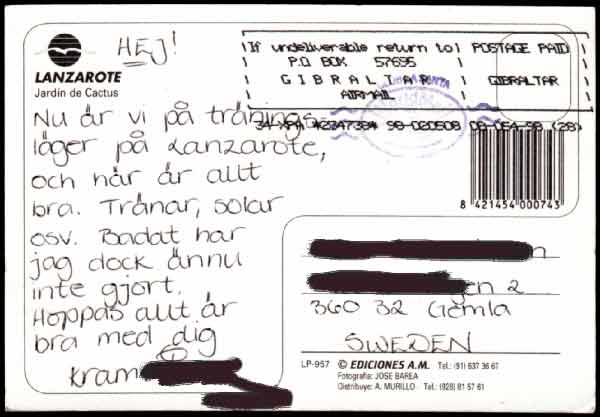 HEJ!
LANZAROTE
Jardín de Cactus
Nu är vi på tränings
läger på Lanzarote,
och här är allt
bra. Tränar, solar
osv. Badat har
jag dock ännu
inte gjort.
Hoppas allt är
bra med dig
Kram
If undeliverable return to
P.O. BOX 57695
GIBRALTAR
AIRMAIL
POSTAGE PAID
GIBRALTAR
8 421454 000743
n
en 2
360 32 Gemla
SWEDEN
LP-957 © EDICIONES A.M. Tel.: (91) 637 36 67
Fotografía: JOSE BAREA
Distribuye: A. MURILLO - Tel.: (928) 81 57 61